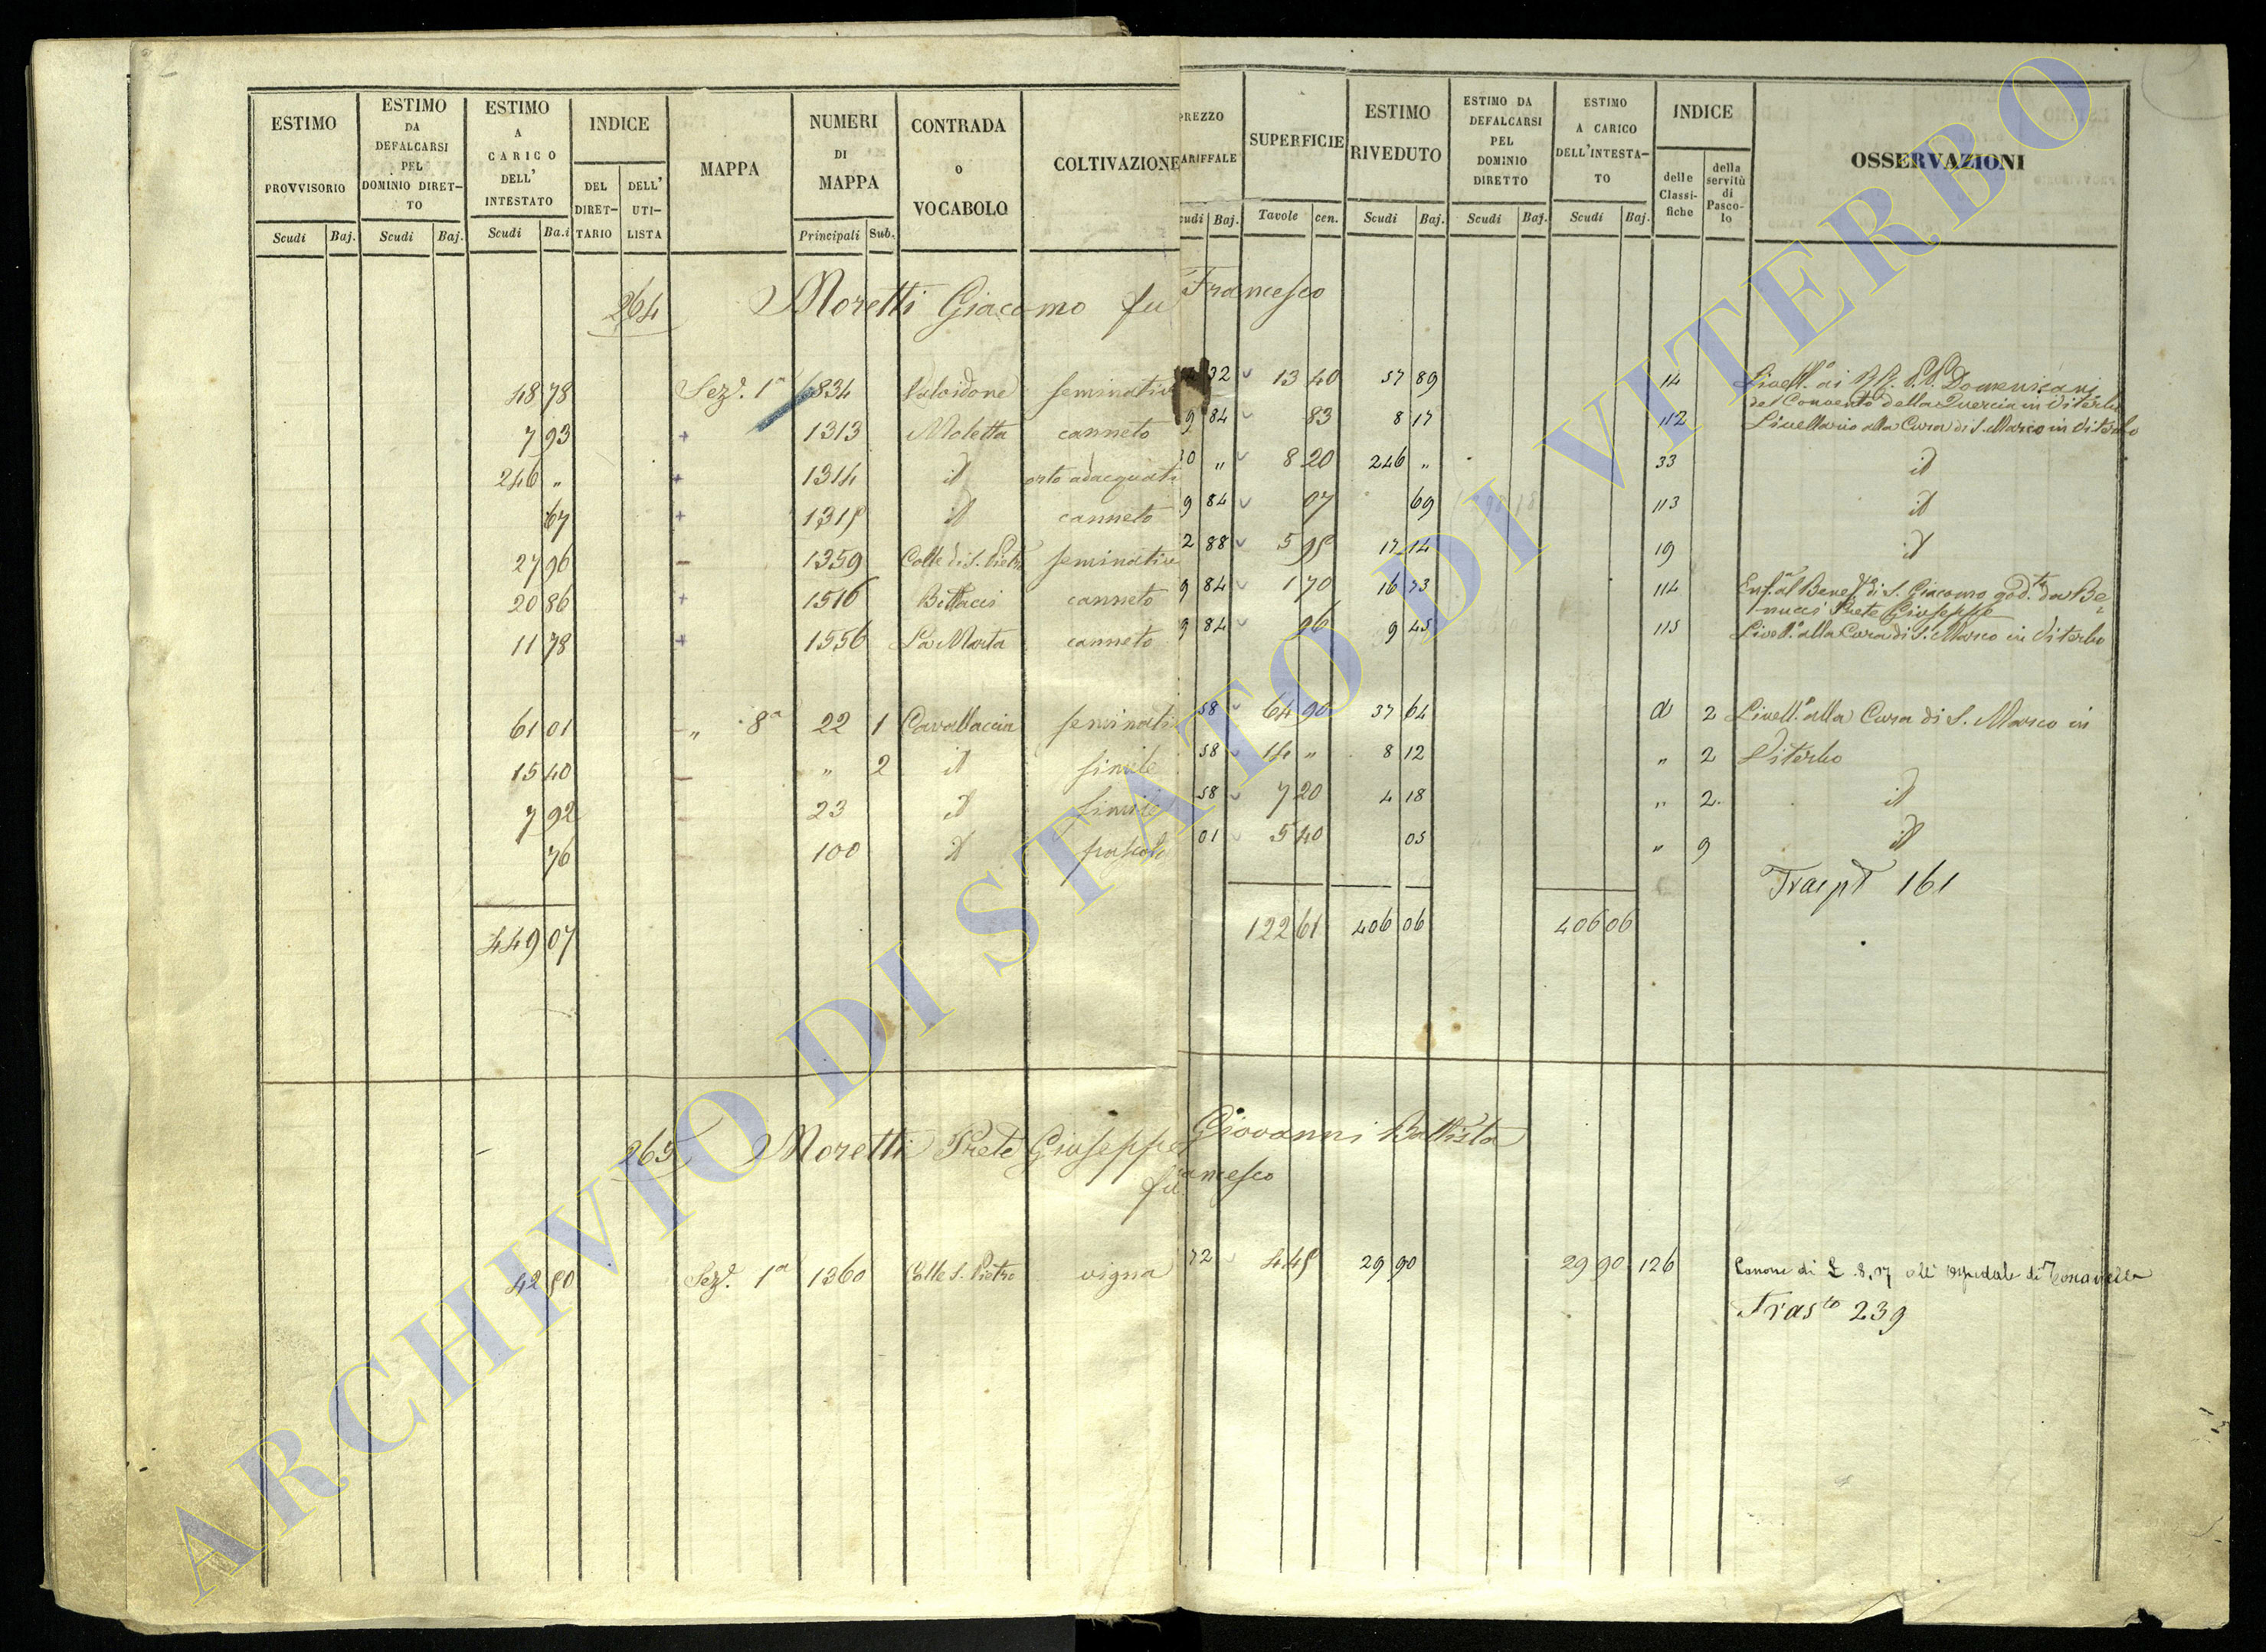 ESTIMO PROVVISORIO | ESTIMO DA DEFALCARSI PEL DOMINIO DIRETTO | ESTIMO A CARICO DELL' INTESTATO | INDICE | MAPPA | NUMERI DI MAPPA | CONTRADA O VOCABOLO | COLTIVAZIONE | PREZZO TARIFFALE | SUPERFICIE | ESTIMO RIVEDUTO | ESTIMO DA DEFALCARSI PEL DOMINIO DIRETTO | ESTIMO A CARICO DELL'INTESTATO | INDICE | OSSERVAZIONI
DEL DIRETTARIO | DELL' UTILISTA | delle Classifiche | della servitù di Pascolo
Scudi | Baj. | Scudi | Baj. | Scudi | Ba.i | Principali | Sub. | cudi | Baj. | Tavole | cen. | Scudi | Baj. | Scudi | Baj. | Scudi | Baj.
264 Moretti Giacomo fu Francesco
48 78 Sez.e 1a 834 seminativo 32 13 40 57 89 14 Livell.o ai RR. PP. Domenicani
del Convento della Quercia in Viterbo
7 93 + 1313 Moletta canneto 9 84 83 8 17 112 Livellario alla Cura di S. Marco in Viterbo
246 " + 1314 id orto adacquato 30 " 8 20 246 " 33 id
67 + 1315 id canneto 9 84 07 69 113 id
27 96 - 1359 Colle di S. Pietro seminativo 2 88 5 95 17 14 19 id
20 86 + 1516 canneto 9 84 1 70 16 73 114 Enf.a al Benef. di S. Giacomo god.to da Be=
nucci Prete Giuseppe
11 78 + 1556 La Marta canneto 9 84 96 9 45 115 Livell.o alla Cura di S. Marco in Viterbo
61 01 " 8a 22 1 Cavallaccia seminati 58 64 90 37 64 d 2 Livell.o alla Cura di S. Marco in
15 40 " 2 id simile 58 14 " 8 12 " 2 Viterbo
7 92 23 id simile 58 7 20 4 18 " 2 id
76 100 id pascolo 01 5 40 05 " 9 id
161
449 07 122 61 406 06 406 06
265 Moretti Prete Giuseppe Giovanni Battista
fu ancesco
42 80 Sez.e 1a 1360 Colle S. Pietro vigna 72 4 45 29 90 29 90 126 Canone di £ 8,07 all' ospedale di
Tras.to 239
ARCHIVIO DI STATO DI VITERBO